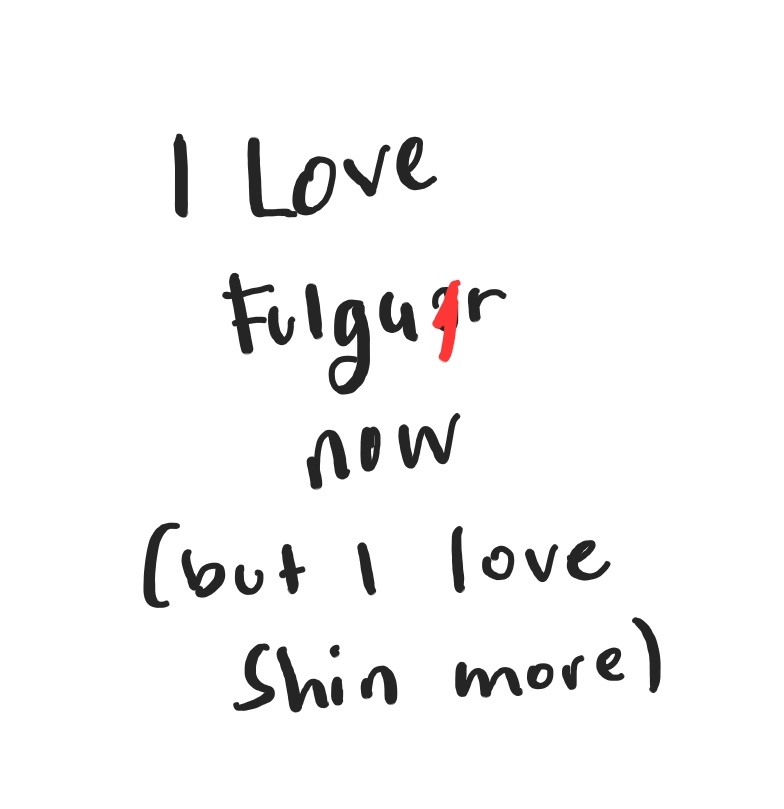 I Love
Fulgur
now
(but I love
Shin more)